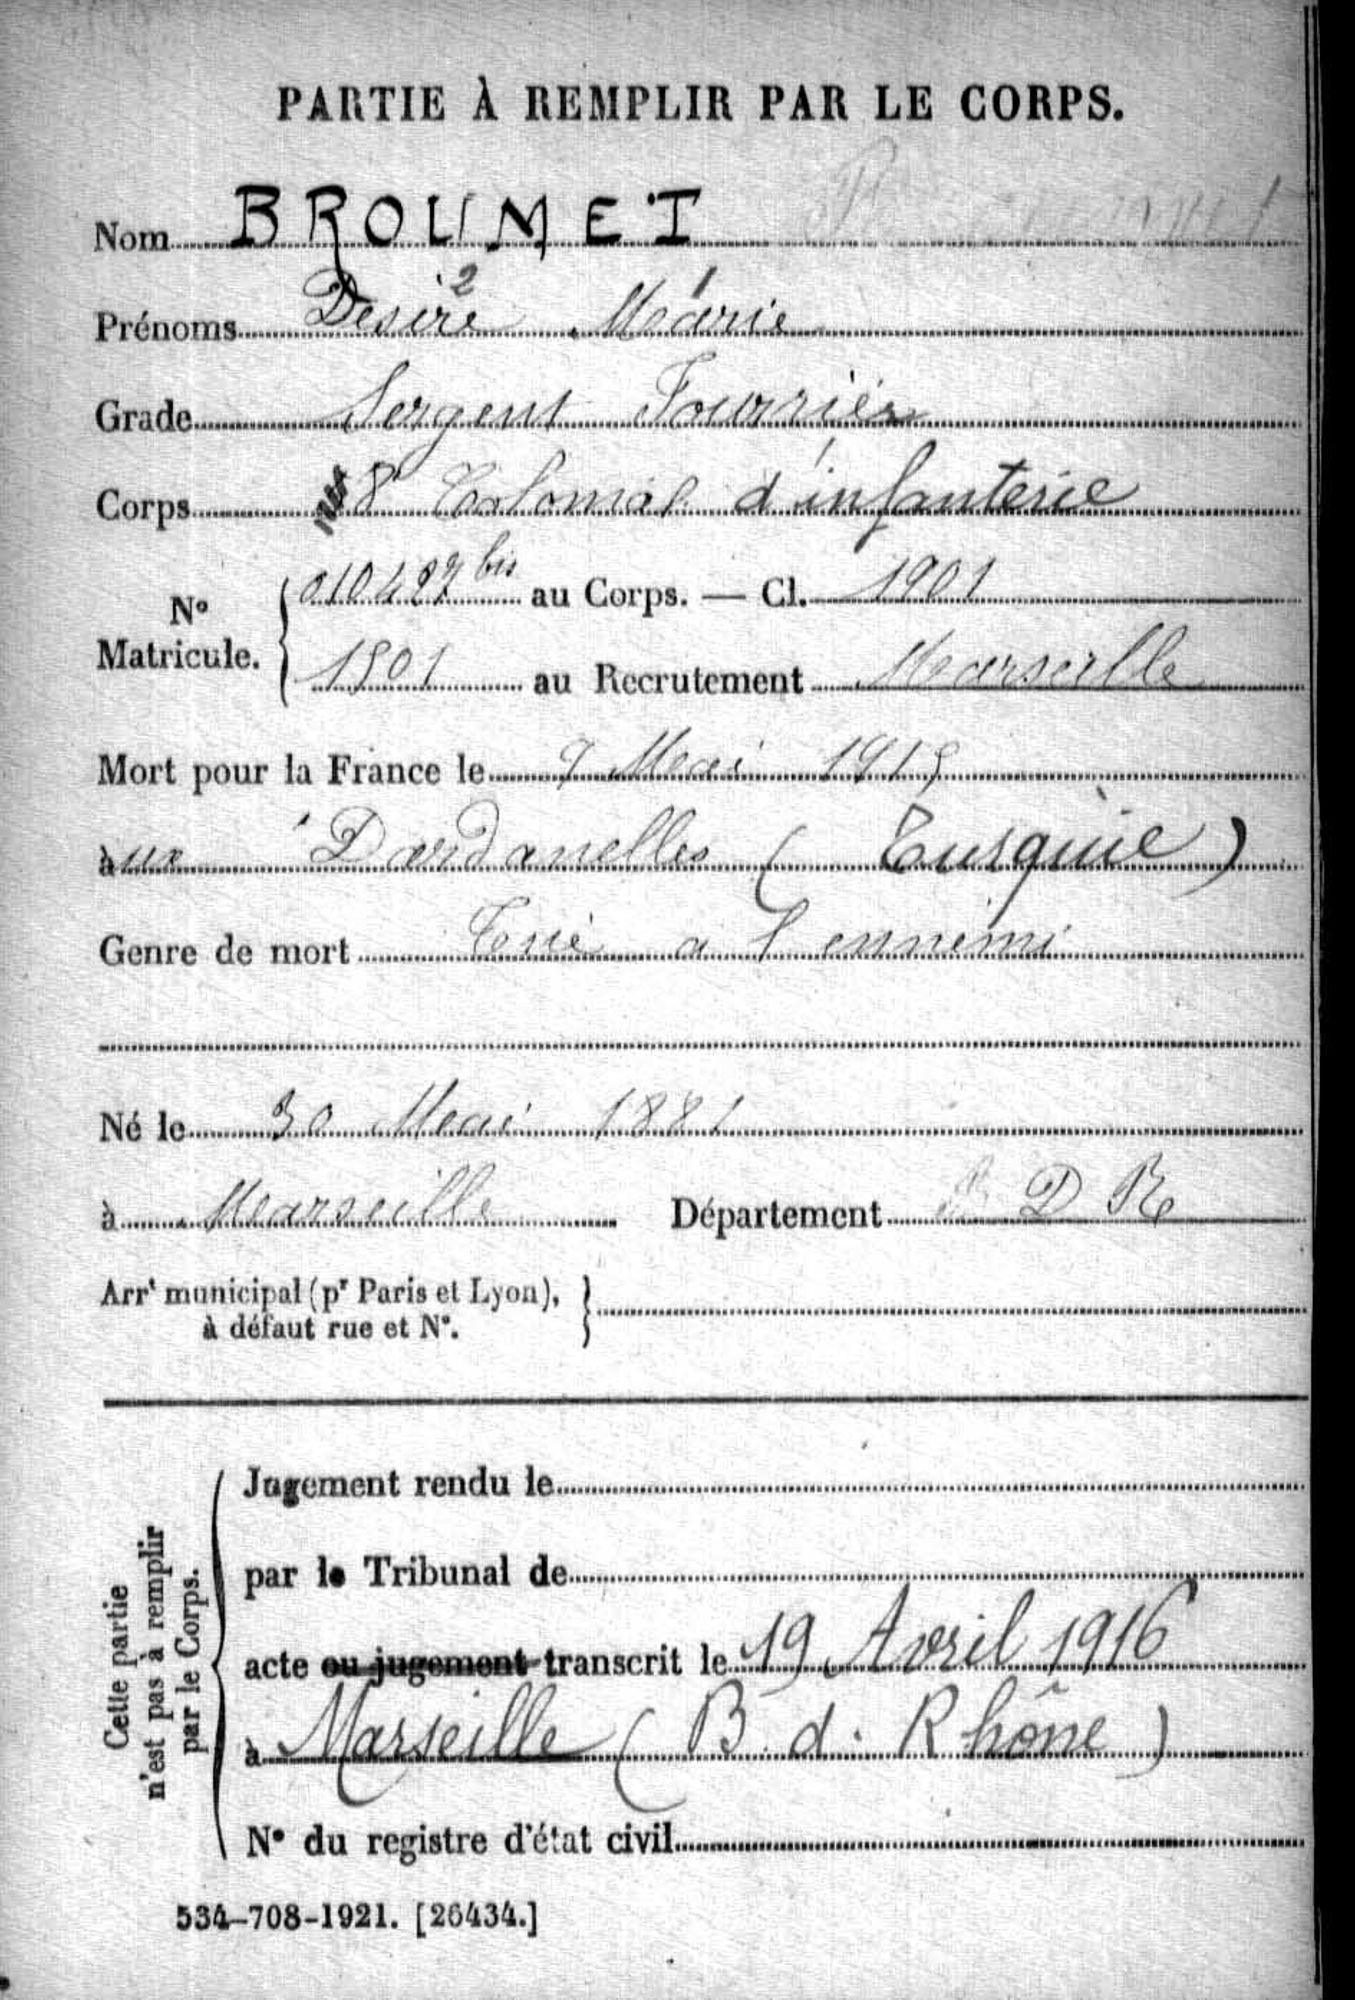 PARTIE À REMPLIR PAR LE CORPS.
Nom BROUMET
Prénoms Desiré 2 Marie 1
Grade Sergent Fourrier
Corps 8e Colonial d'infanterie
No Matricule. { 010427 bis au Corps. — Cl. 1901
1501 au Recrutement Marseille
Mort pour la France le 7 Mai 1915
aux Dardanelles (Turquie)
Genre de mort Tué a l'ennemi
Né le 30 Mai 1881
à Marseille Département B D R
Arrt municipal (pr Paris et Lyon), }
à défaut rue et No.
Cette partie n'est pas à remplir par le Corps.
Jugement rendu le
par le Tribunal de
acte ou jugement transcrit le 19 Avril 1916
à Marseille (B. d. Rhône)
No du registre d'état civil
534-708-1921. [26434.]